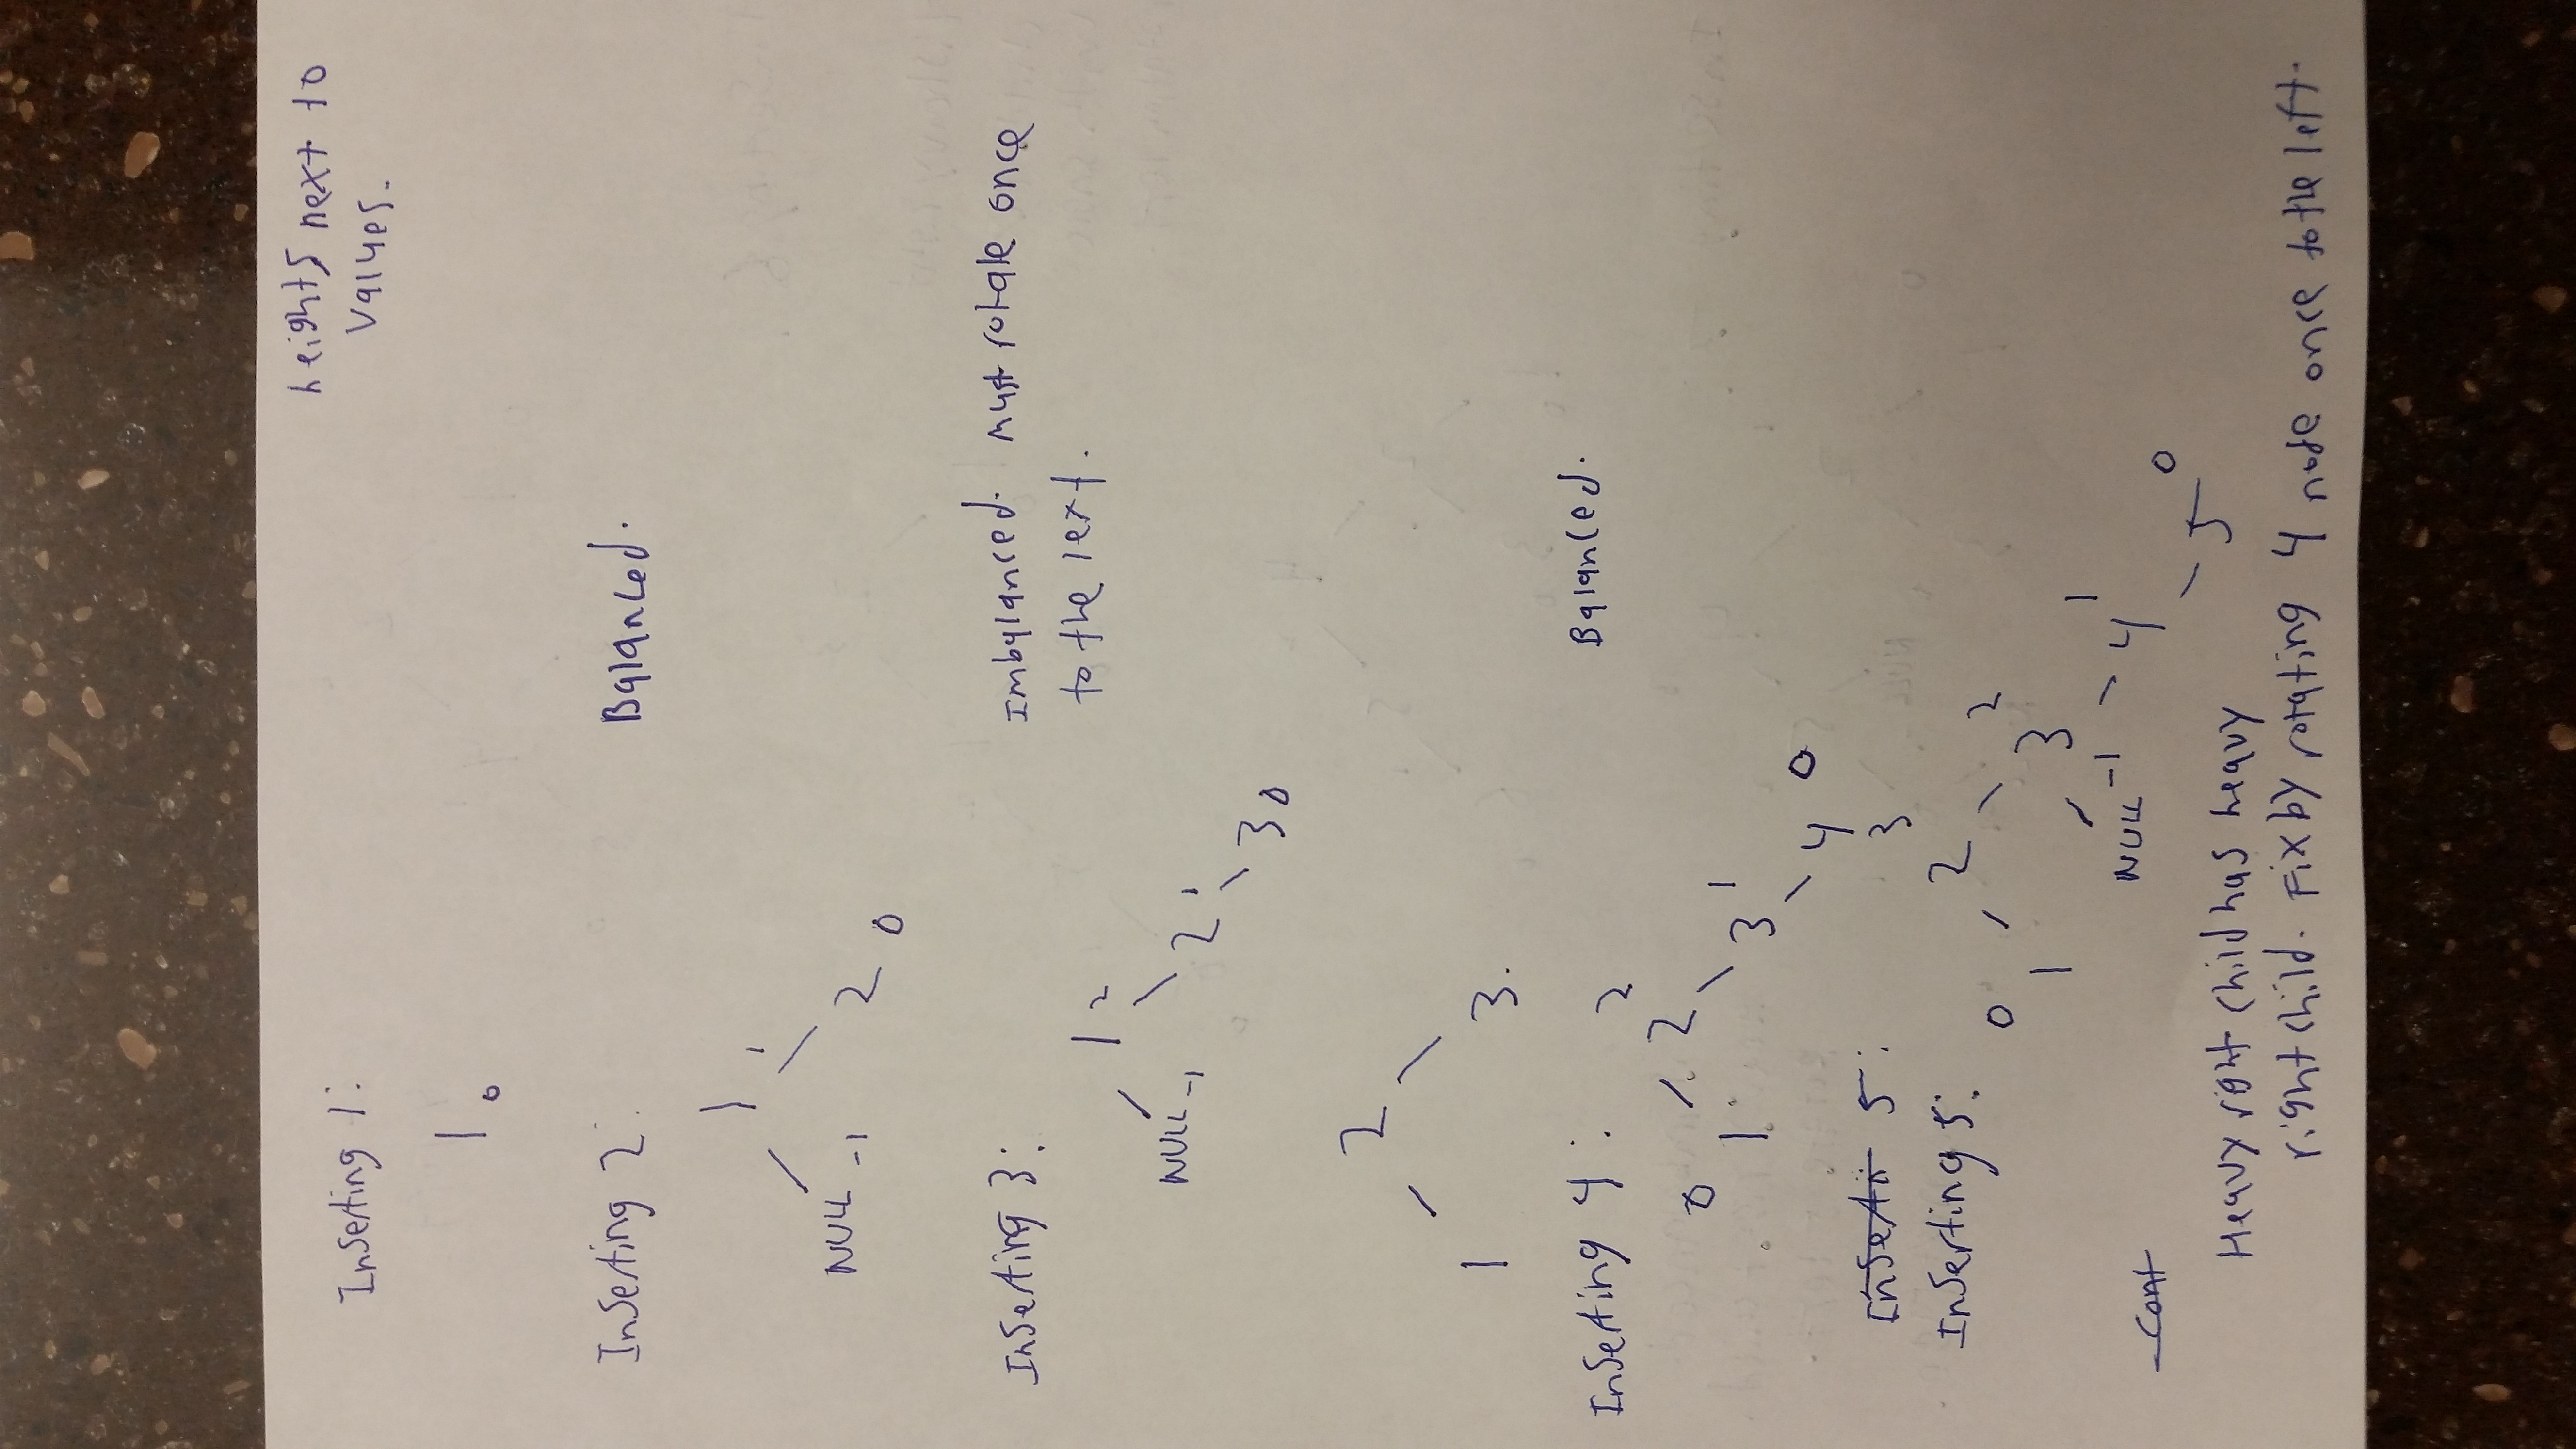 heights next to
values.
Inserting 1:
1 0
Inserting 2:
Balanced.
1 1
NULL -1
2 0
Inserting 3:
Imbalanced. must rotate once
to the left.
1 2
NULL -1
2 1
3 0
2
1 3.
Inserting 4:
Balanced.
2
0 2
1 3 1
4 0
Insertin 5:
3
Inserting 5:
2
0 2
1 3
NULL -1 4 1
5 0
Cont
Heavy right child has heavy
right child. Fix by rotating 4 node once to the left.